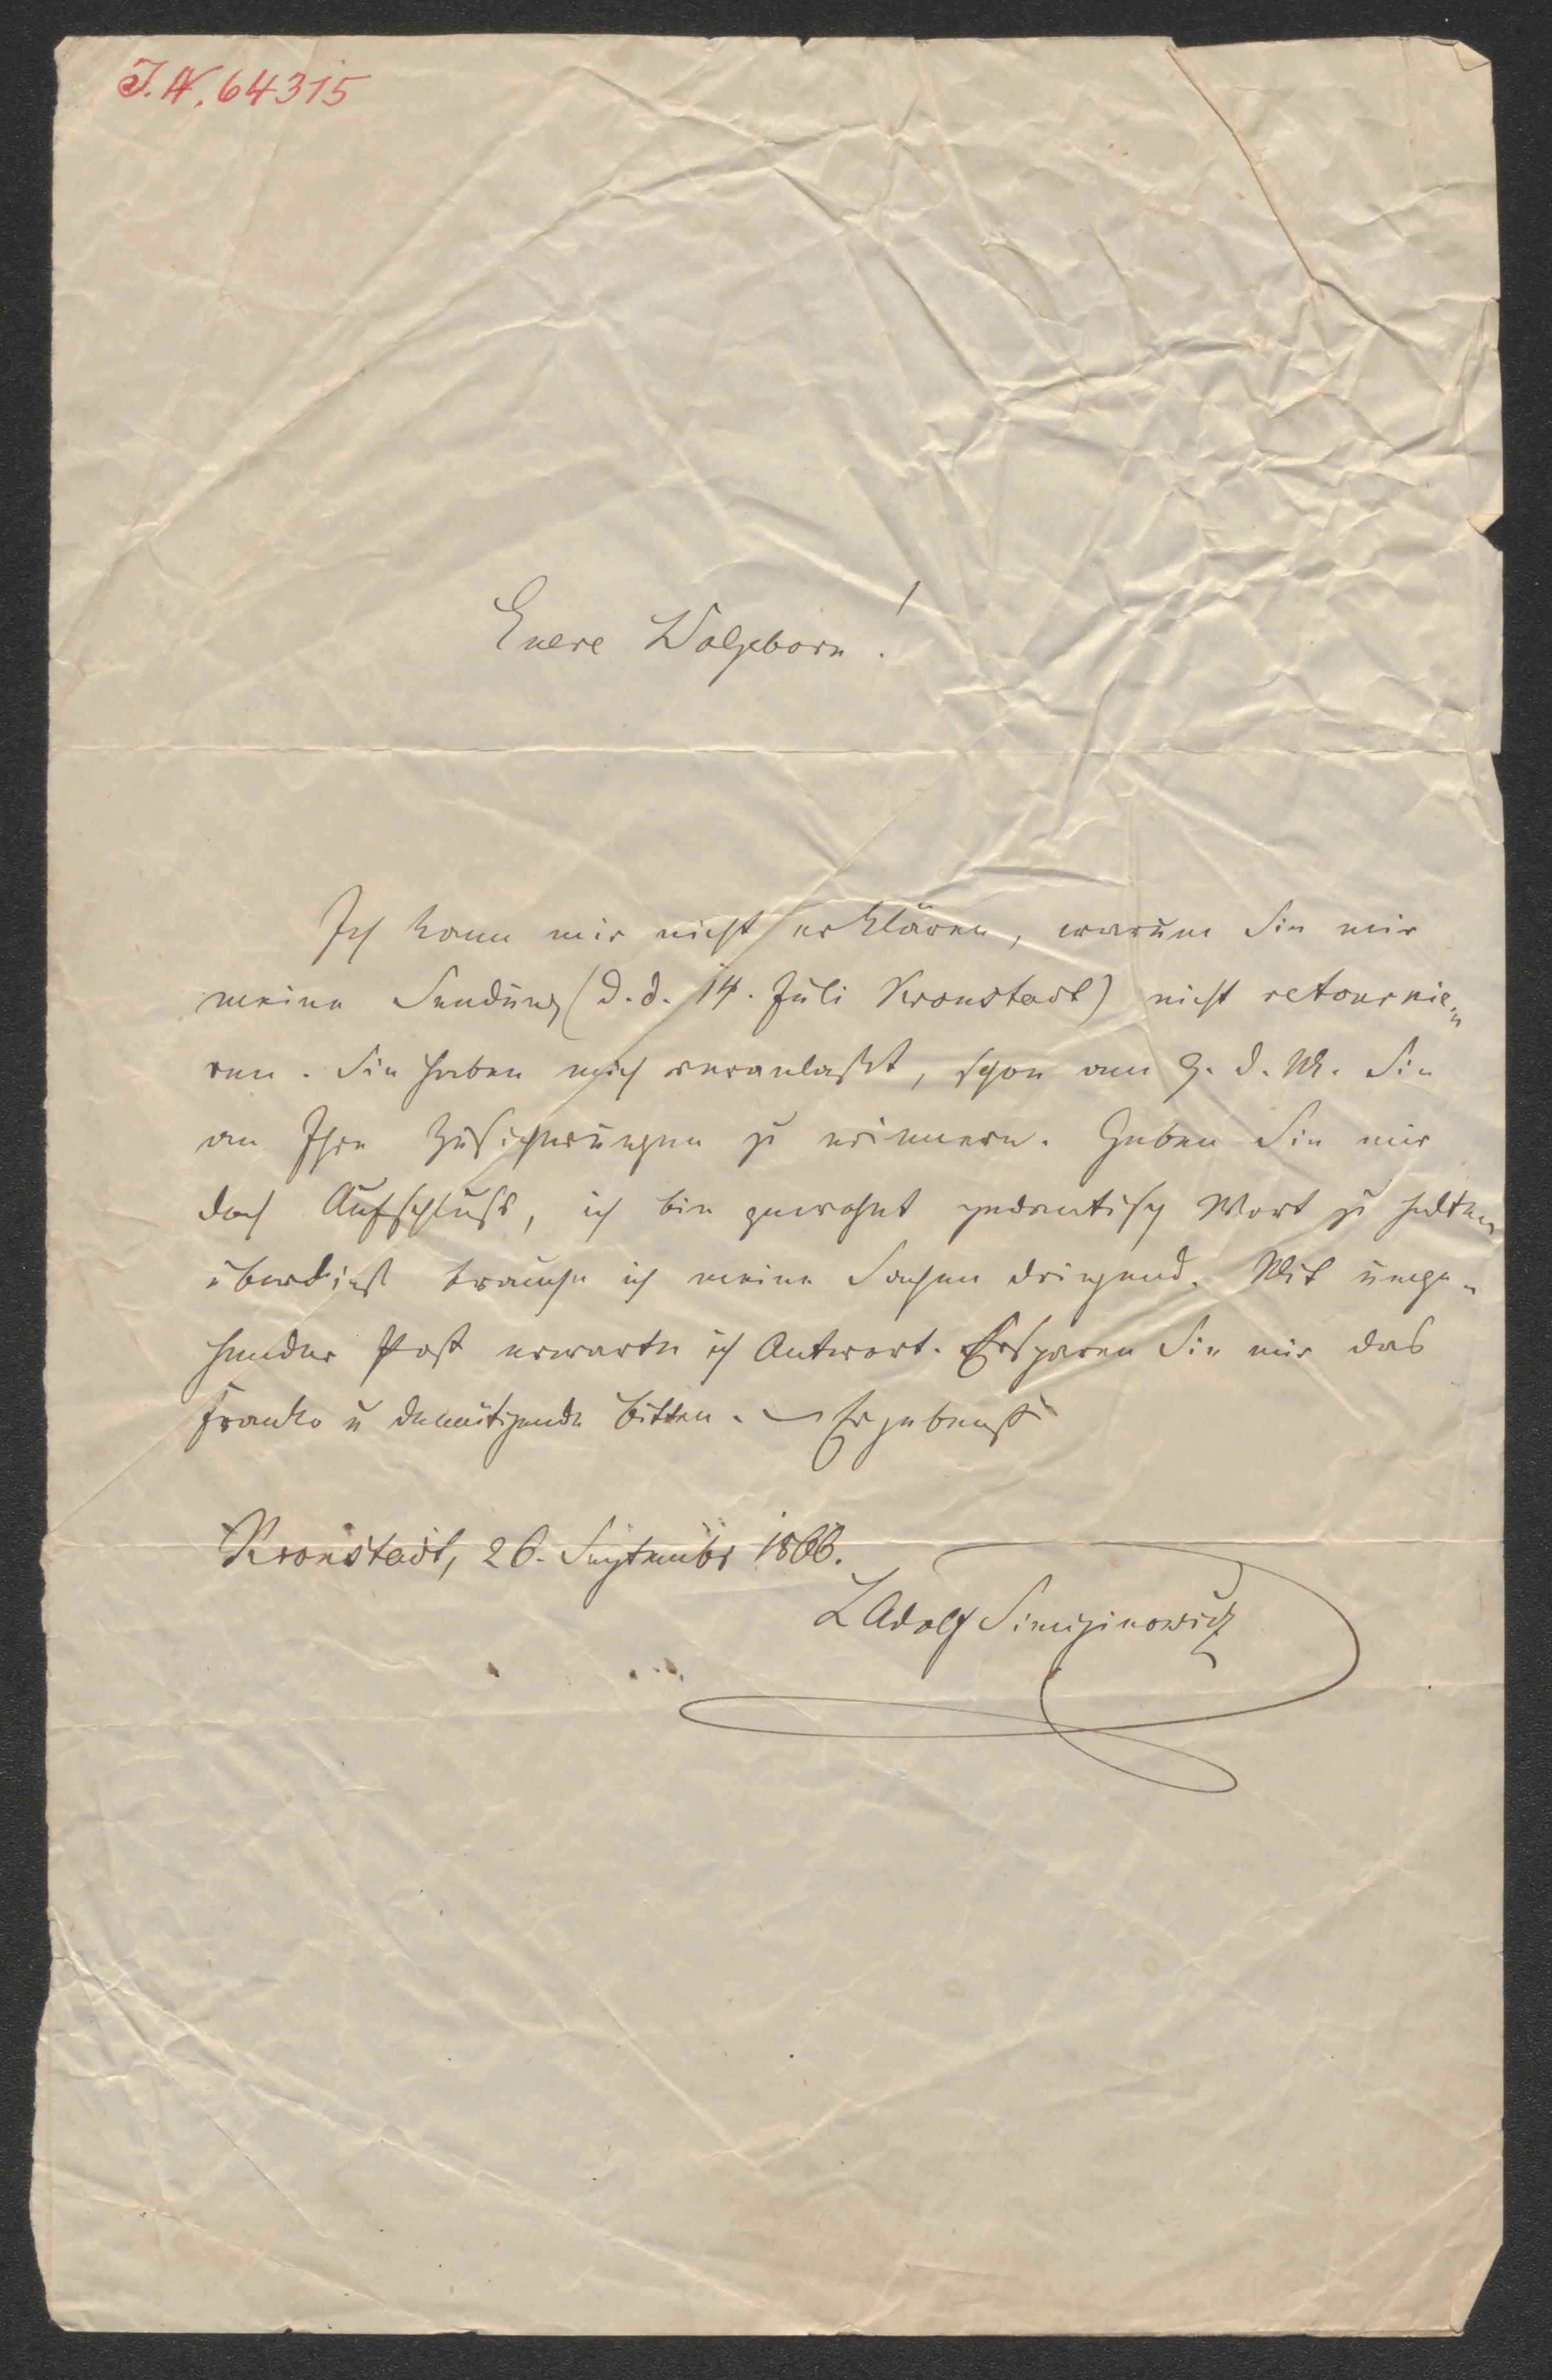 J. N. 64315
Euere Wolgeborn!
Ich kann mir nicht erklären, warum Sie mir
meine Sendung (d. d. 14. Juli Kronstadt) nicht retournie-
ren. Sie haben mich veranlaßt, schon am 9. d. M. Sie
an Ihre Zusicherungen zu erinnern. Geben Sie mir
doch Aufschluß, ich bin gewohnt pedantisch Wort zu halten
überdieß brauche ich meine Sachen dringend. Mit umge-
hender Post erwarte ich Antwort. Ersparen Sie mir das
Franko u demütigende Bitten. — Ergebenst
Kronstadt, 26. September 1866.
L Adolf Simiginowicz